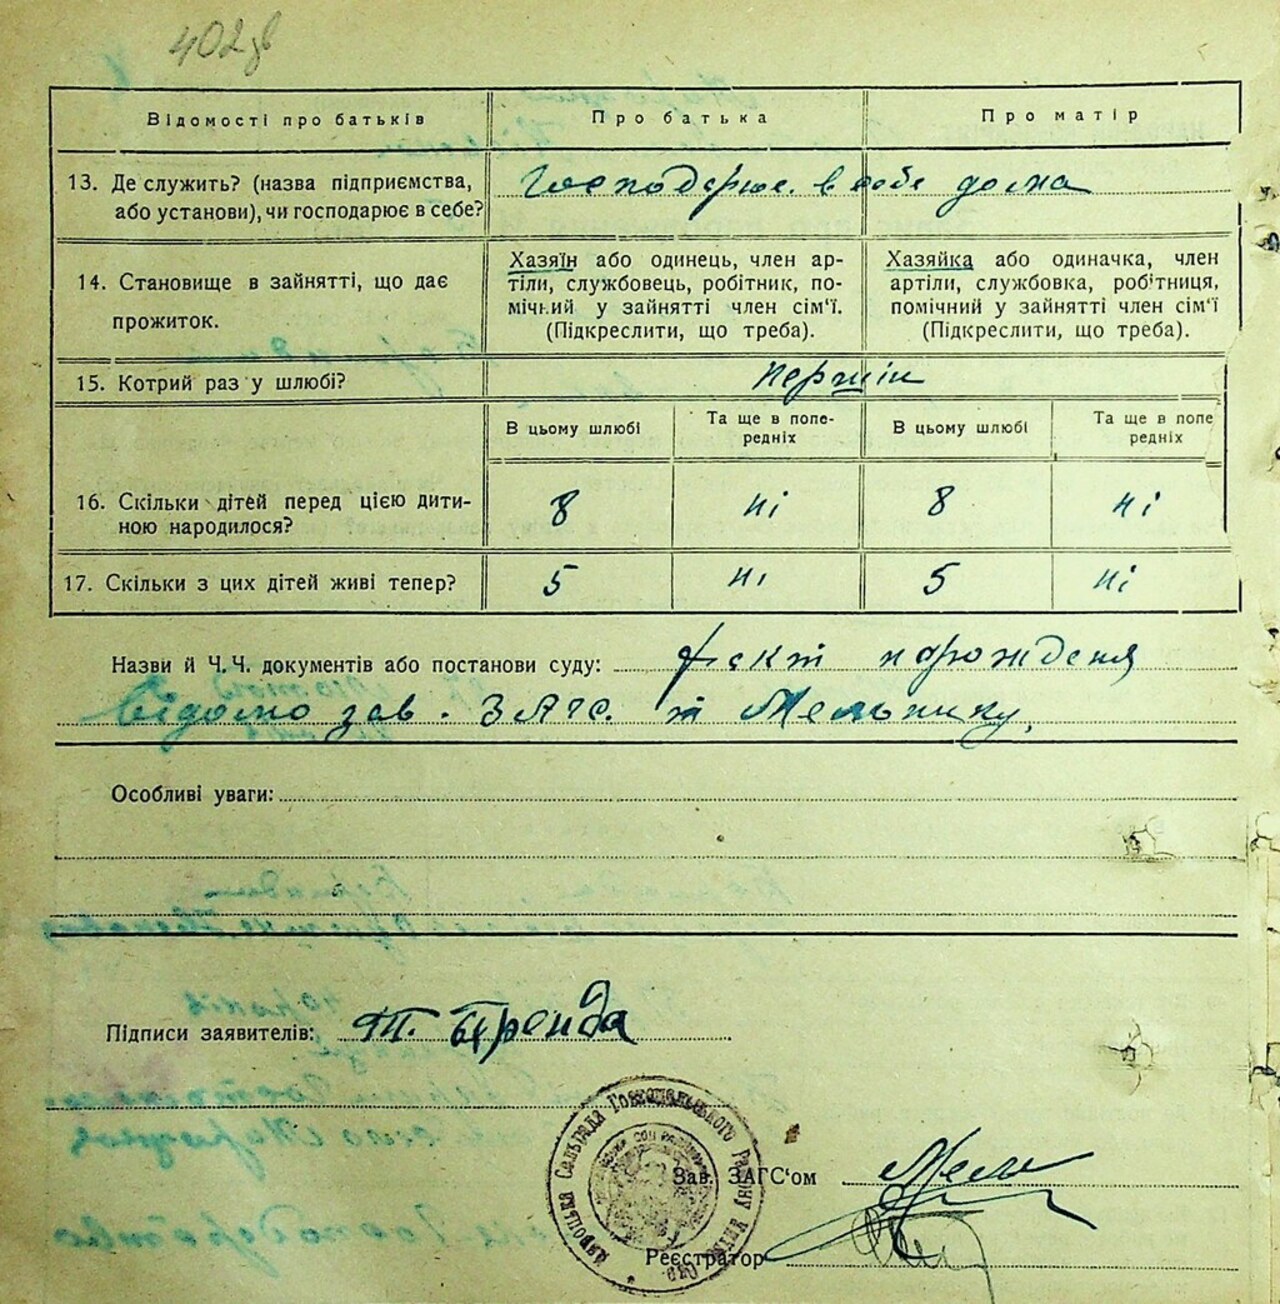 402
Відомості про батьків
Про батька
Про матір
13. Де служить? (назва підприємства,
або установи), чи господарює в себе?
Господарює в себе дома
14. Становище в зайнятті, що дає
прожиток.
Хазяїн або одинець, член ар-
тілі, службовець, робітник, по-
мічний у зайнятті член сім'ї.
(Підкреслити, що треба).
Хазяйка або одиначка, член
артілі, службовка, робітниця,
помічний у зайнятті член сім'ї
(Підкреслити, що треба).
15. Котрий раз у шлюбі?
В цьому шлюбі
Та ще в попе-
редніх
В цьому шлюбі
Та ще в попе
редніх
16. Скільки дітей перед цією дити-
ною народилося?
8 ні 8 ні
17. Скільки з цих дітей живі тепер?
5 ні 5 ні
Назви й Ч.Ч. документів або постанови суду: факт нарождения
відомо зав. ЗАГС. Мельнику,
Особливі уваги:
Підписи заявителів:
Зав. ЗАГС'ом
Реєстратор